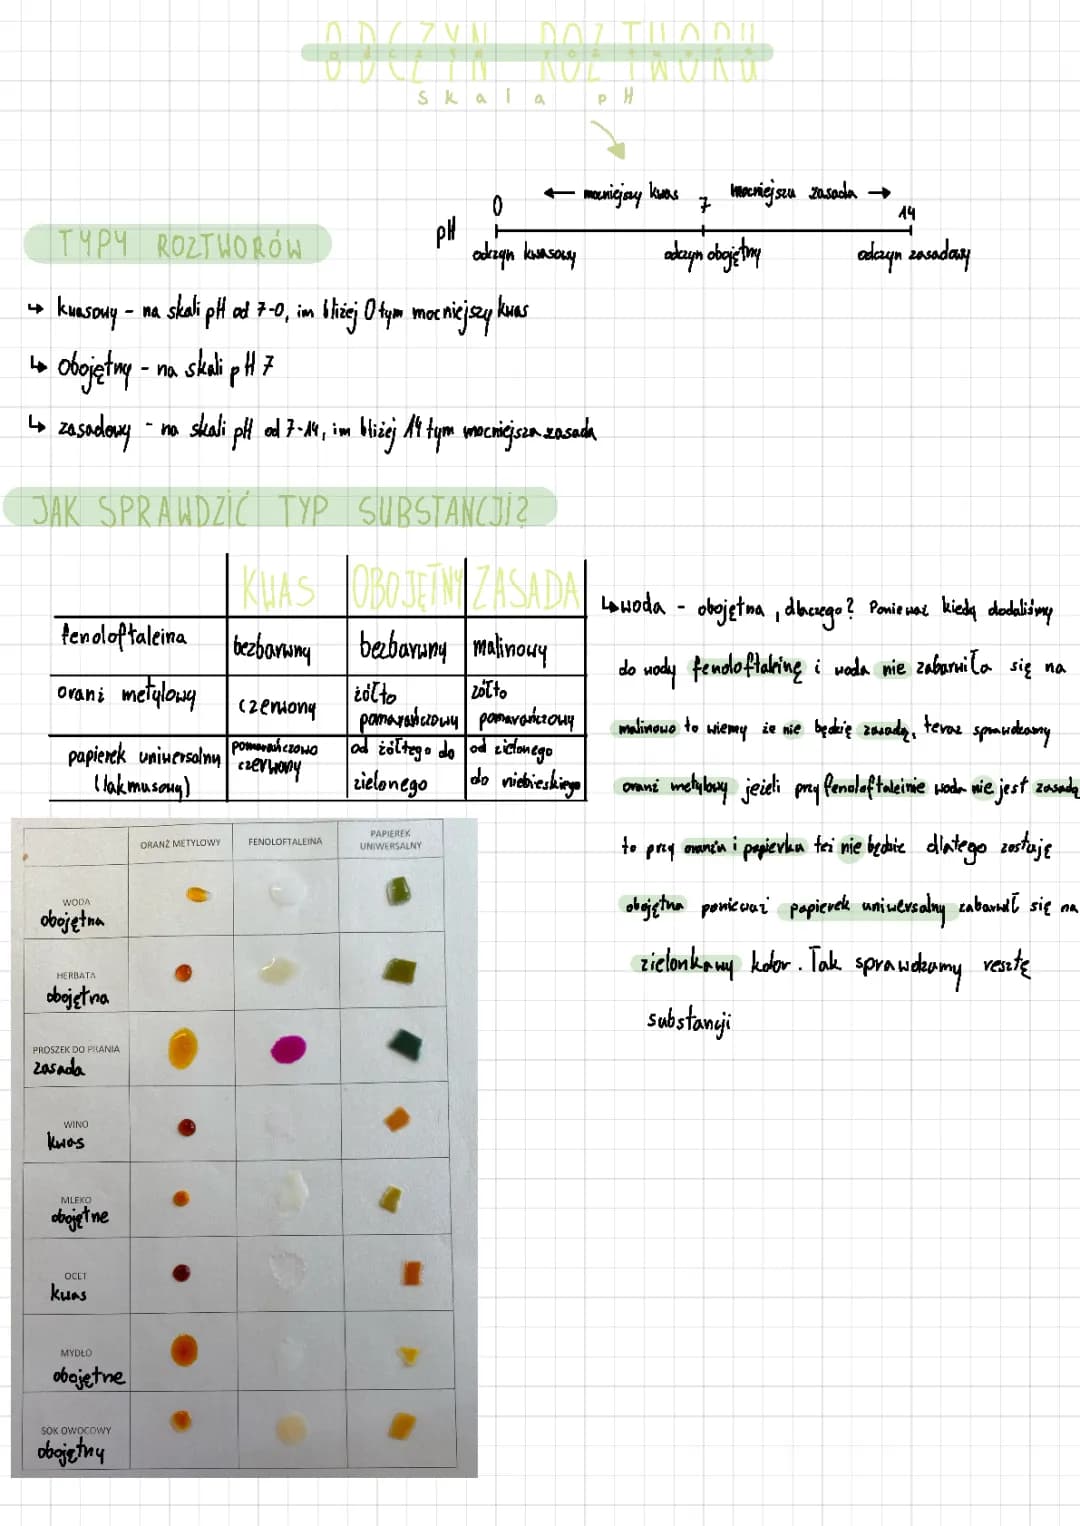 ODCZYN ROZTWORU
odczyn roztworu
skala pH
0 ← mocniejszy kwas 7 mocniejsza zasada → 14
pH
odczyn kwasowy odczyn obojętny odczyn zasadowy
TYPY ROZTWORÓW
↳ kwasowy - na skali pH od 7-0, im bliżej 0 tym mocniejszy kwas
↳ obojętny - na skali pH 7
↳ zasadowy - na skali pH od 7-14, im bliżej 14 tym mocniejsza zasada
JAK SPRAWDZIĆ TYP SUBSTANCJI?
KWAS OBOJĘTNY ZASADA
fenoloftaleina bezbarwny bezbarwny malinowy
oranż metylowy czerwony żółto pomarańczowy żółto pomarańczowy
papierek uniwersalny (lakmusowy) pomarańczowo czerwony od żółtego do zielonego od zielonego do niebieskiego
↳ woda - obojętna, dlaczego? Ponieważ kiedy dodaliśmy
do wody fenoloftaleinę i woda nie zabarwiła się na
malinowo to wiemy że nie będzie zasadą, teraz sprawdzamy
oranż metylowy jeżeli przy fenoloftaleinie woda nie jest zasadą
to przy oranżu i papierku też nie będzie dlatego zostaje
obojętna ponieważ papierek uniwersalny zabarwił się na
zielonkawy kolor. Tak sprawdzamy resztę
substancji
ORANŻ METYLOWY FENOLOFTALEINA PAPIEREK UNIWERSALNY
WODA
obojętna
HERBATA
obojętna
PROSZEK DO PRANIA
zasada
WINO
kwas
MLEKO
obojętne
OCET
kwas
MYDŁO
obojętne
SOK OWOCOWY
obojętny